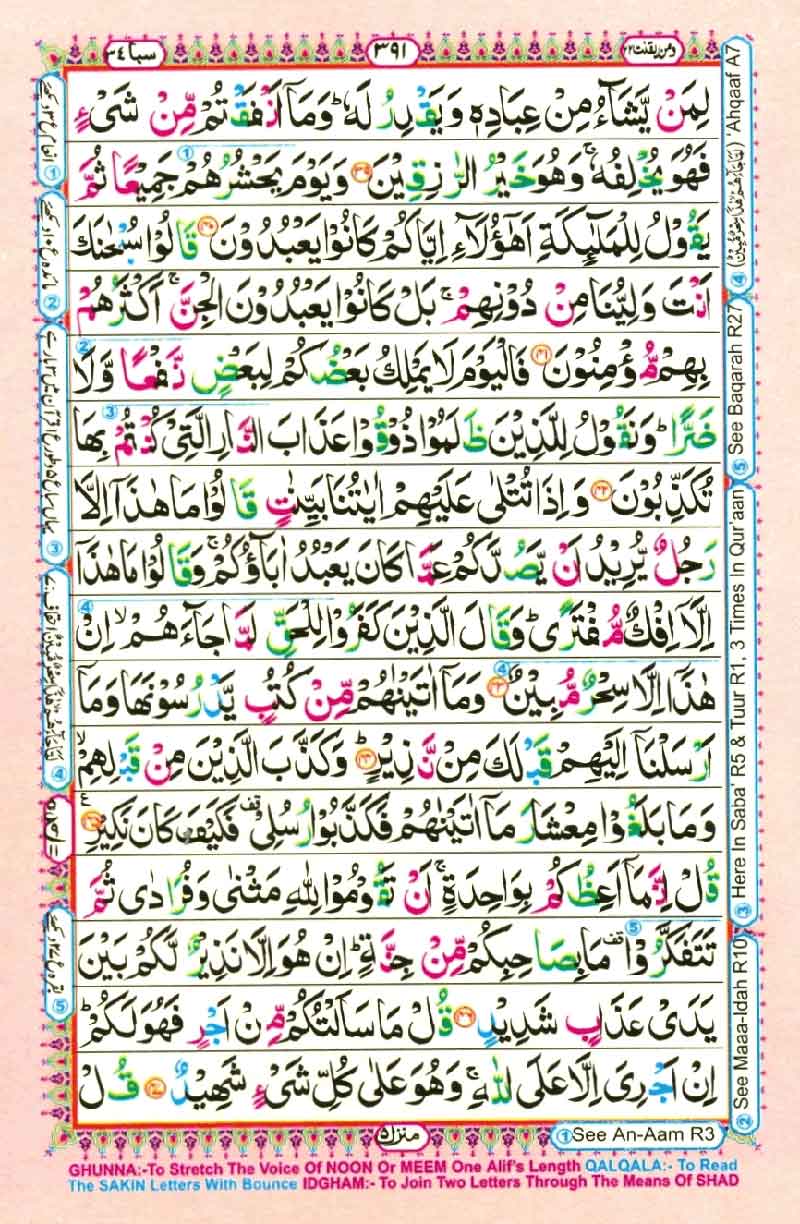 ومن يقنت ٢٢
٣٩١
سبا ٣٤
لِمَنْ يَّشَآءُ مِنْ عِبَادِهٖ وَيَقْدِرُ لَهٗ ؕ وَمَآ اَنْفَقْتُمْ مِّنْ شَىْءٍ
فَهُوَ يُخْلِفُهٗ ۚ وَهُوَ خَيْرُ الرّٰزِقِيْنَ ﴿٣٩﴾ وَيَوْمَ يَحْشُرُهُمْ جَمِيْعًا ثُمَّ
يَقُوْلُ لِلْمَلٰٓئِكَةِ اَهٰٓؤُلَآءِ اِيَّاكُمْ كَانُوْا يَعْبُدُوْنَ ﴿٤٠﴾ قَالُوْا سُبْحٰنَكَ
اَنْتَ وَلِيُّنَا مِنْ دُوْنِهِمْ ۚ بَلْ كَانُوْا يَعْبُدُوْنَ الْجِنَّ ۚ اَكْثَرُهُمْ
بِهِمْ مُّؤْمِنُوْنَ ﴿٤١﴾ فَالْيَوْمَ لَا يَمْلِكُ بَعْضُكُمْ لِبَعْضٍ نَّفْعًا وَّلَا
ضَرًّا ؕ وَنَقُوْلُ لِلَّذِيْنَ ظَلَمُوْا ذُوْقُوْا عَذَابَ النَّارِ الَّتِىْ كُنْتُمْ بِهَا
تُكَذِّبُوْنَ ﴿٤٢﴾ وَاِذَا تُتْلٰى عَلَيْهِمْ اٰيٰتُنَا بَيِّنٰتٍ قَالُوْا مَا هٰذَآ اِلَّا
رَجُلٌ يُّرِيْدُ اَنْ يَّصُدَّكُمْ عَمَّا كَانَ يَعْبُدُ اٰبَآؤُكُمْ ۚ وَقَالُوْا مَا هٰذَآ
اِلَّآ اِفْكٌ مُّفْتَرًى ؕ وَقَالَ الَّذِيْنَ كَفَرُوْا لِلْحَقِّ لَمَّا جَآءَهُمْ ۙ اِنْ
هٰذَآ اِلَّا سِحْرٌ مُّبِيْنٌ ﴿٤٣﴾ وَمَآ اٰتَيْنٰهُمْ مِّنْ كُتُبٍ يَّدْرُسُوْنَهَا وَمَآ
اَرْسَلْنَآ اِلَيْهِمْ قَبْلَكَ مِنْ نَّذِيْرٍ ﴿٤٤﴾ وَكَذَّبَ الَّذِيْنَ مِنْ قَبْلِهِمْ ۙ
وَمَا بَلَغُوْا مِعْشَارَ مَآ اٰتَيْنٰهُمْ فَكَذَّبُوْا رُسُلِىْ ۫ فَكَيْفَ كَانَ نَكِيْرِ ﴿٤٥﴾
قُلْ اِنَّمَآ اَعِظُكُمْ بِوَاحِدَةٍ ۚ اَنْ تَقُوْمُوْا لِلّٰهِ مَثْنٰى وَفُرَادٰى ثُمَّ
تَتَفَكَّرُوْا ۫ مَا بِصَاحِبِكُمْ مِّنْ جِنَّةٍ ؕ اِنْ هُوَ اِلَّا نَذِيْرٌ لَّكُمْ بَيْنَ
يَدَىْ عَذَابٍ شَدِيْدٍ ﴿٤٦﴾ قُلْ مَا سَاَلْتُكُمْ مِّنْ اَجْرٍ فَهُوَ لَكُمْ ؕ
اِنْ اَجْرِىَ اِلَّا عَلَى اللّٰهِ ۚ وَهُوَ عَلٰى كُلِّ شَىْءٍ شَهِيْدٌ ﴿٤٧﴾ قُلْ
منزل ٥
① See An-Aam R3
② See Maaa-Idah R10
③ Here In Saba' R5 & Tuur R1, 3 Times In Qur'aan
⑤ See Baqarah R27
④ 'Ahqaaf A7
GHUNNA:-To Stretch The Voice Of NOON Or MEEM One Alif's Length QALQALA:- To Read
The SAKIN Letters With Bounce IDGHAM:- To Join Two Letters Through The Means Of SHAD